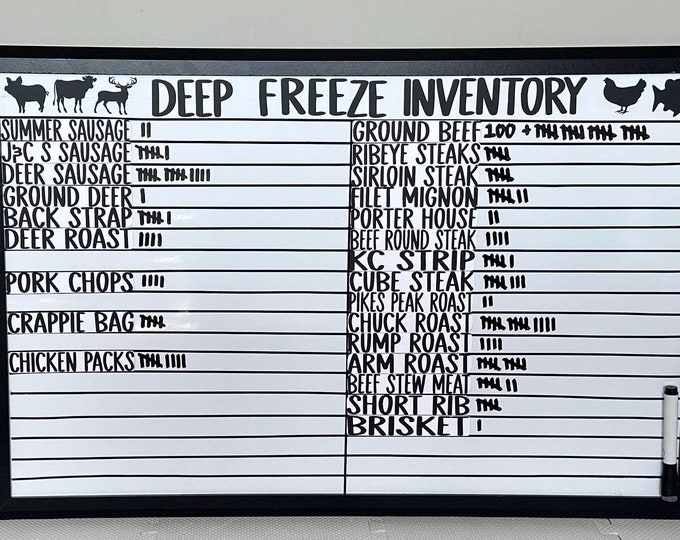 DEEP FREEZE INVENTORY
SUMMER SAUSAGE
J&C S SAUSAGE
DEER SAUSAGE
GROUND DEER
BACK STRAP
DEER ROAST
PORK CHOPS
CRAPPIE BAG
CHICKEN PACKS
GROUND BEEF 100 +
RIBEYE STEAKS
SIRLOIN STEAK
FILET MIGNON
PORTER HOUSE
BEEF ROUND STEAK
KC STRIP
CUBE STEAK
PIKES PEAK ROAST
CHUCK ROAST
RUMP ROAST
ARM ROAST
BEEF STEW MEAT
SHORT RIB
BRISKET